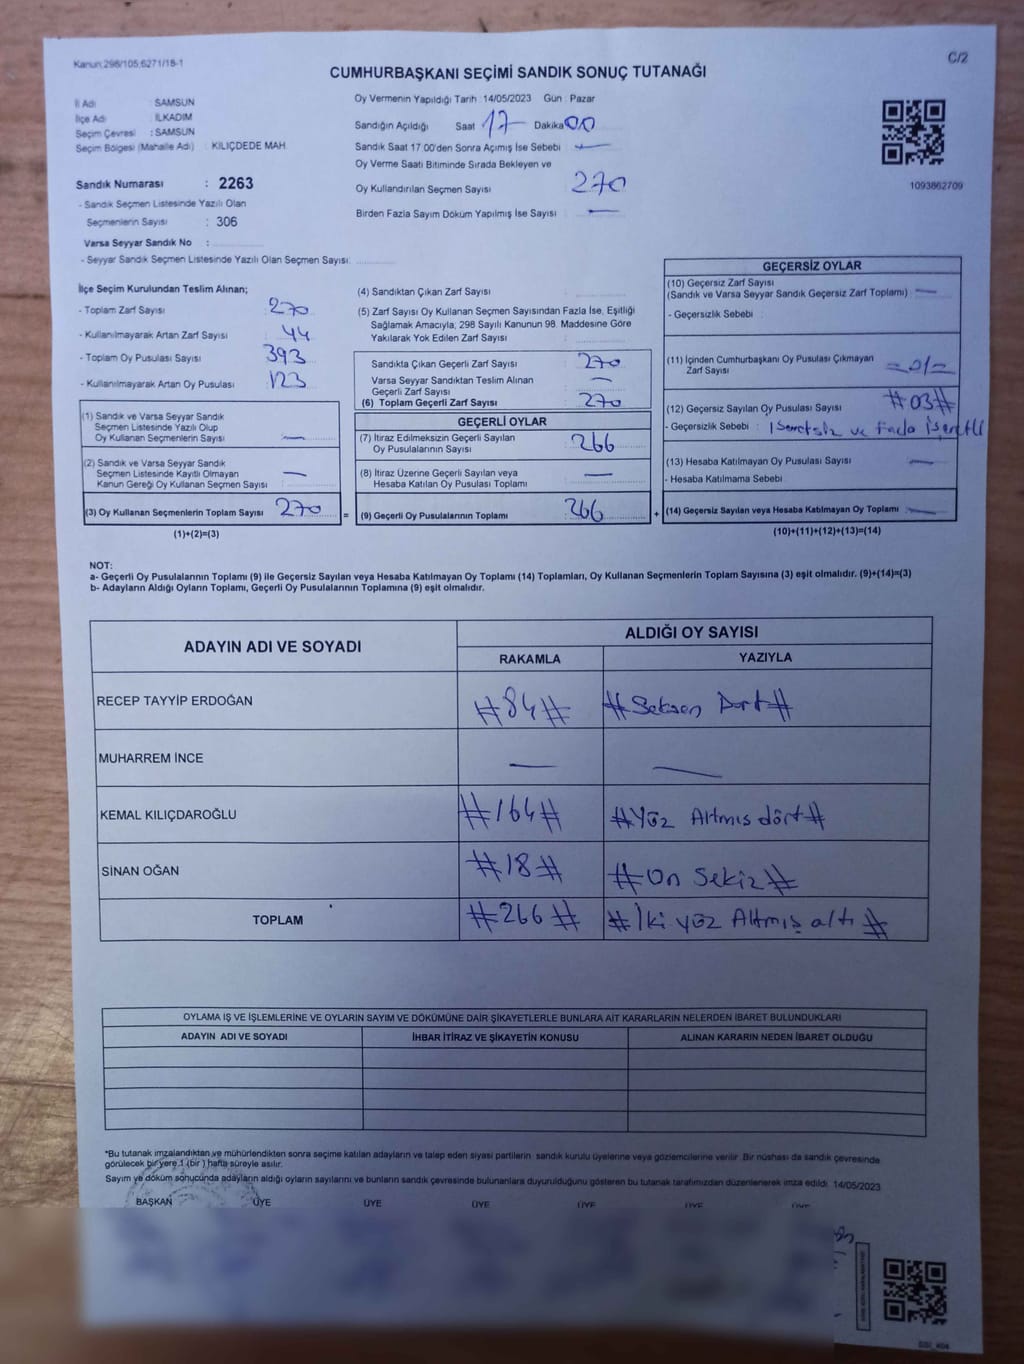 Kanun:298/105,6271/18-1
C/2
CUMHURBAŞKANI SEÇİMİ SANDIK SONUÇ TUTANAĞI
İl Adı : SAMSUN
İlçe Adı : İLKADIM
Seçim Çevresi : SAMSUN
Seçim Bölgesi (Mahalle Adı) : KILIÇDEDE MAH.
Sandık Numarası : 2263
- Sandık Seçmen Listesinde Yazılı Olan
Seçmenlerin Sayısı : 306
Varsa Seyyar Sandık No :
- Seyyar Sandık Seçmen Listesinde Yazılı Olan Seçmen Sayısı:
Oy Vermenin Yapıldığı Tarih :14/05/2023 Gün : Pazar
Sandığın Açıldığı Saat 17 Dakika 00
Sandık Saat 17:00'den Sonra Açımış İse Sebebi : —
Oy Verme Saati Bitiminde Sırada Bekleyen ve
Oy Kullandırılan Seçmen Sayısı : 270
Birden Fazla Sayım Döküm Yapılmış İse Sayısı : —
1093862709
İlçe Seçim Kurulundan Teslim Alınan;
- Toplam Zarf Sayısı : 270
- Kullanılmayarak Artan Zarf Sayısı : 44
- Toplam Oy Pusulası Sayısı : 393
- Kullanılmayarak Artan Oy Pusulası : 123
(1) Sandık ve Varsa Seyyar Sandık
Seçmen Listesinde Yazılı Olup
Oy Kullanan Seçmenlerin Sayısı : —
(2) Sandık ve Varsa Seyyar Sandık
Seçmen Listesinde Kayıtlı Olmayan
Kanun Gereği Oy Kullanan Seçmen Sayısı : —
(3) Oy Kullanan Seçmenlerin Toplam Sayısı : 270
(1)+(2)=(3)
(4) Sandıktan Çıkan Zarf Sayısı :
(5) Zarf Sayısı Oy Kullanan Seçmen Sayısından Fazla İse, Eşitliği
Sağlamak Amacıyla; 298 Sayılı Kanunun 98. Maddesine Göre
Yakılarak Yok Edilen Zarf Sayısı :
Sandıkta Çıkan Geçerli Zarf Sayısı : 270
Varsa Seyyar Sandıktan Teslim Alınan
Geçerli Zarf Sayısı : —
(6) Toplam Geçerli Zarf Sayısı : 270
GEÇERLİ OYLAR
(7) İtiraz Edilmeksizin Geçerli Sayılan
Oy Pusulalarının Sayısı : 266
(8) İtiraz Üzerine Geçerli Sayılan veya
Hesaba Katılan Oy Pusulası Toplamı : —
= (9) Geçerli Oy Pusulalarının Toplamı : 266
GEÇERSİZ OYLAR
(10) Geçersiz Zarf Sayısı
(Sandık ve Varsa Seyyar Sandık Geçersiz Zarf Toplamı) : —
- Geçersizlik Sebebi :
(11) İçinden Cumhurbaşkanı Oy Pusulası Çıkmayan
Zarf Sayısı : =01=
(12) Geçersiz Sayılan Oy Pusulası Sayısı : #03#
- Geçersizlik Sebebi : işaretsiz ve Fazla işaretli
(13) Hesaba Katılmayan Oy Pusulası Sayısı : —
- Hesaba Katılmama Sebebi :
+ (14) Geçersiz Sayılan veya Hesaba Katılmayan Oy Toplamı : —
(10)+(11)+(12)+(13)=(14)
NOT:
a- Geçerli Oy Pusulalarının Toplamı (9) ile Geçersiz Sayılan veya Hesaba Katılmayan Oy Toplamı (14) Toplamları, Oy Kullanan Seçmenlerin Toplam Sayısına (3) eşit olmalıdır. (9)+(14)=(3)
b- Adayların Aldığı Oyların Toplamı, Geçerli Oy Pusulalarının Toplamına (9) eşit olmalıdır.
ADAYIN ADI VE SOYADI
ALDIĞI OY SAYISI
RAKAMLA YAZIYLA
RECEP TAYYİP ERDOĞAN #84# #Seksen Dört#
MUHARREM İNCE — —
KEMAL KILIÇDAROĞLU #164# #Yüz Altmış dört#
SİNAN OĞAN #18# #On Sekiz#
TOPLAM #266# #İki yüz Altmış altı#
OYLAMA İŞ VE İŞLEMLERİNE VE OYLARIN SAYIM VE DÖKÜMÜNE DAİR ŞİKAYETLERLE BUNLARA AİT KARARLARIN NELERDEN İBARET BULUNDUKLARI
ADAYIN ADI VE SOYADI İHBAR İTİRAZ VE ŞİKAYETİN KONUSU ALINAN KARARIN NEDEN İBARET OLDUĞU
*Bu tutanak imzalandıktan ve mühürlendikten sonra seçime katılan adayların ve talep eden siyasi partilerin sandık kurulu üyelerine veya gözlemcilerine verilir. Bir nüshası da sandık çevresinde
görülecek bir yere 1 (bir) hafta süreyle asılır.
Sayım ve döküm sonucunda adayların aldığı oyların sayılarını ve bunların sandık çevresinde bulunanlara duyurulduğunu gösteren bu tutanak tarafımızdan düzenlenerek imza edildi. 14/05/2023
BAŞKAN ÜYE ÜYE ÜYE ÜYE ÜYE ÜYE